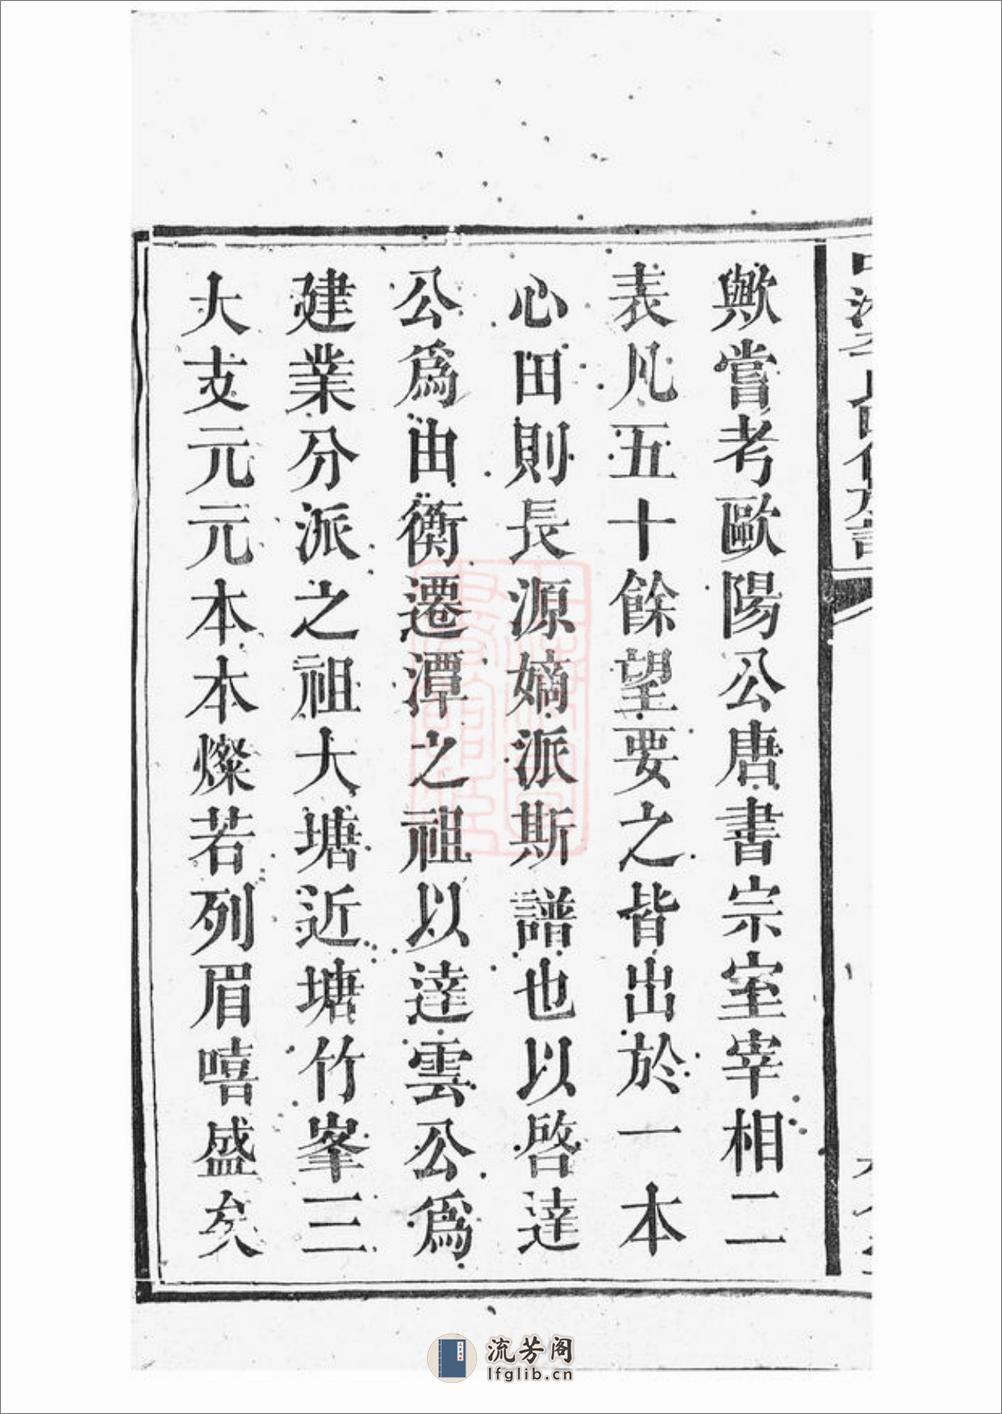 歟嘗考歐陽公唐書宗室宰相二
表凡五十餘望要之皆出於一本
心田則長源嫡派斯譜也以啓達
公爲由衡遷潭之祖以達雲公爲
建業分派之祖大塘近塘竹峯三
大支元元本本燦若列眉嘻盛矣
流芳阁
lfglib.cn